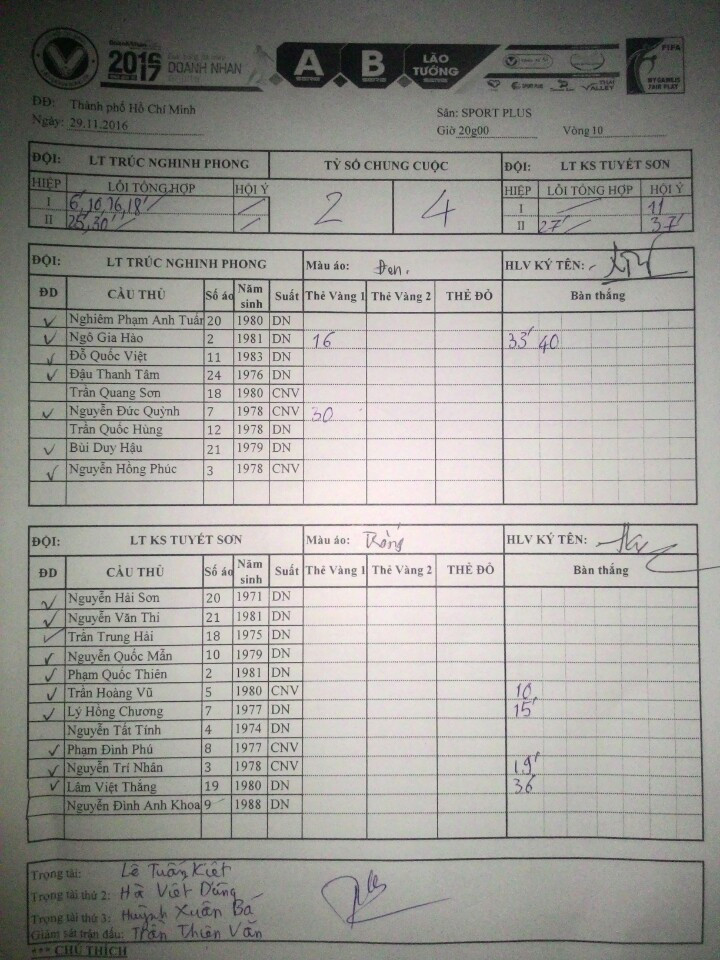 2016
17
DOANH NHAN
A
B
LÀO TƯỚNG
FIFA
MY GAME IS FAIR PLAY
DĐ: Thành phố Hồ Chí Minh
Sân: SPORT PLUS
Ngày: 29.11.2016
Giờ 20g00 Vòng 10
ĐỘI: LT TRÚC NGHINH PHONG TỶ SỐ CHUNG CUỘC ĐỘI: LT KS TUYẾT SƠN
HIỆP LỖI TỔNG HỢP HỘI Ý 2 4 HIỆP LỖI TỔNG HỢP HỘI Ý
I 6', 10, 16, 18' I 11
II 25', 30' II 27' 37'
ĐỘI: LT TRÚC NGHINH PHONG Màu áo: Đen. HLV KÝ TÊN:
ĐD CẦU THỦ Số áo Năm sinh Suất Thẻ Vàng 1 Thẻ Vàng 2 THẺ ĐỎ Bàn thắng
Nghiêm Phạm Anh Tuấn 20 1980 DN
Ngô Gia Hào 2 1981 DN 16 33' 40
Đỗ Quốc Việt 11 1983 DN
Đậu Thanh Tâm 24 1976 DN
Trần Quang Sơn 18 1980 CNV
Nguyễn Đức Quỳnh 7 1978 CNV 30
Trần Quốc Hùng 12 1978 DN
Bùi Duy Hậu 21 1979 DN
Nguyễn Hồng Phúc 3 1978 CNV
ĐỘI: LT KS TUYẾT SƠN Màu áo: Trắng HLV KÝ TÊN:
ĐD CẦU THỦ Số áo Năm sinh Suất Thẻ Vàng 1 Thẻ Vàng 2 THẺ ĐỎ Bàn thắng
Nguyễn Hải Sơn 20 1971 DN
Nguyễn Văn Thi 21 1981 DN
Trần Trung Hải 18 1975 DN
Nguyễn Quốc Mẫn 10 1979 DN
Phạm Quốc Thiên 2 1981 DN
Trần Hoàng Vũ 5 1980 CNV 10
Lý Hồng Chương 7 1977 DN 15'
Nguyễn Tất Tính 4 1974 DN
Phạm Đình Phú 8 1977 CNV
Nguyễn Trí Nhân 3 1978 CNV 19'
Lâm Việt Thắng 19 1980 DN 36
Nguyễn Đình Anh Khoa 9 1988 DN
Trọng tài: Lê Tuấn Kiệt
Trọng tài thứ 2: Hà Việt Dũng
Trọng tài thứ 3: Huỳnh Xuân Bá
Giám sát trận đấu: Trần Thiên Văn
*** CHÚ THÍCH